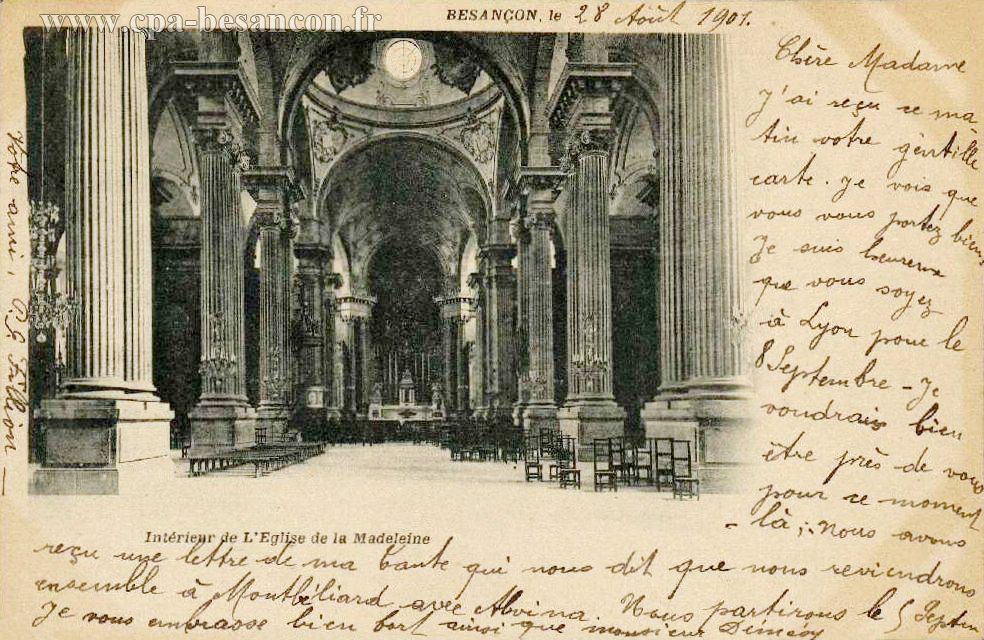 www.cpa-besancon.fr
BESANÇON, le 28 Août 1901.
Chère Madame
J'ai reçu ce ma-
tin votre gentille
carte. Je vois que
vous vous portez bien
Je suis heureuse
que vous soyez
à Lyon pour le
8 Septembre - Je
voudrais bien
être près de vous
pour ce moment
- là ; Nous avons
Intérieur de L'Eglise de la Madeleine
reçu une lettre de ma tante qui nous dit que nous reviendrons
ensemble à Montbéliard avec Alvina. Nous partirons le 5 Septem
Je vous embrasse bien fort ainsi que monsieur
Votre ami,